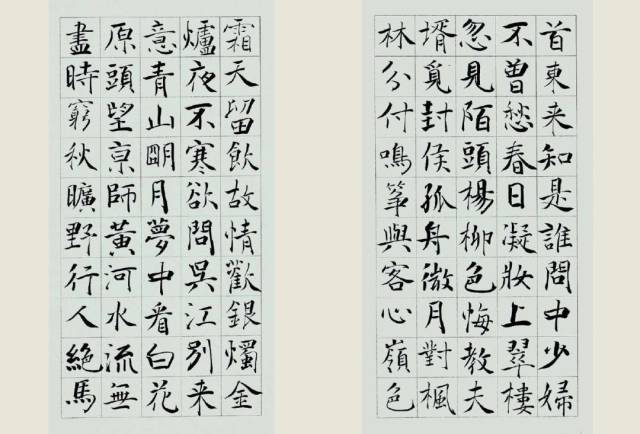 霜天留飲故情歡銀燭金
爐夜不寒欲問吳江別来
意青山明月夢中看白花
原頭望京師黃河水流無
盡時窮秋曠野行人絕馬
首東来知是誰閨中少婦
不曾愁春日凝妝上翠樓
忽見陌頭楊柳色悔教夫
壻覓封侯孤舟微月對楓
林分付鳴箏與客心嶺色